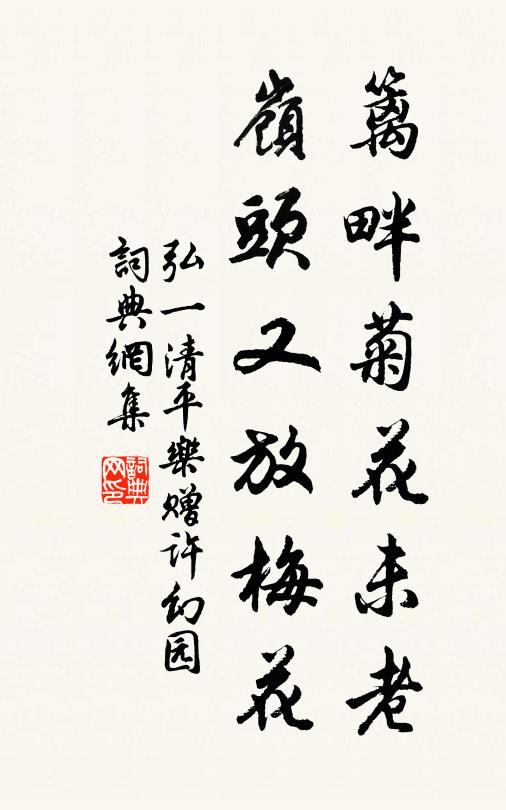 籬畔菊花未老
嶺頭又放梅花
弘一清平樂贈許幻园
詞典網集
詞典网印